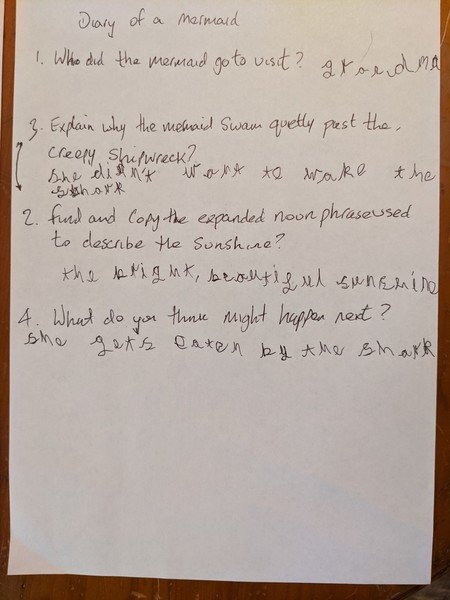 Diary of a Mermaid
1. Who did the mermaid go to visit? grandma
3. Explain why the mermaid swam quetly past the,
creepy shipwreck?
she didn't want to wake the
shark
2. Find and copy the expanded noun phrase used
to describe the sunshine?
the bright, beautiful sunshine
4. What do you think might happen next?
she gets eaten by the shark